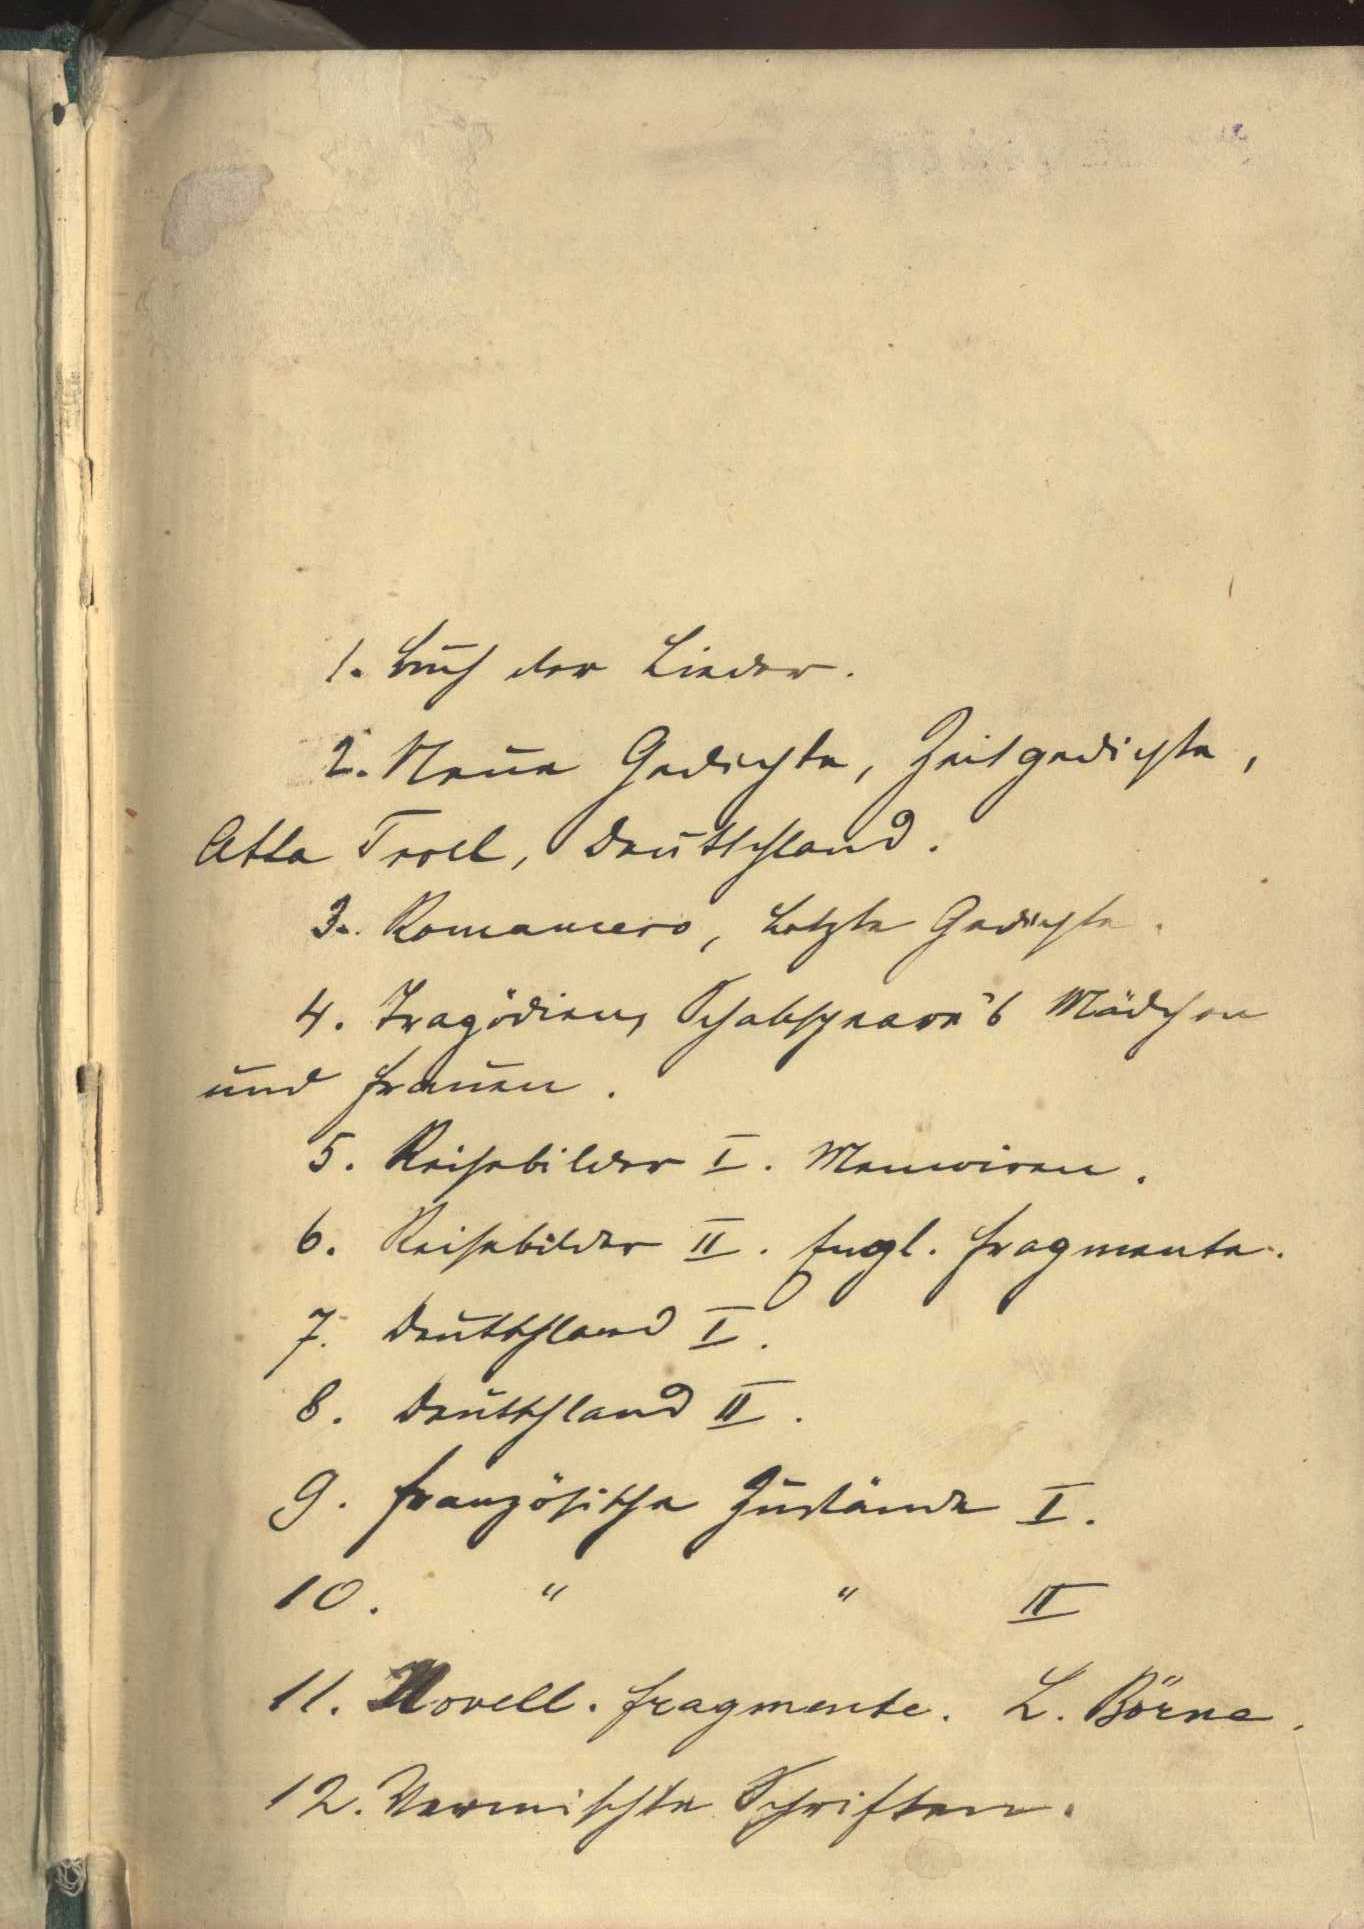 1. Buch der Lieder.
2. Neue Gedichte, Zeitgedichte,
Atta Troll, Deutschland.
3. Romancero, Letzte Gedichte.
4. Tragödien, Schakspeare's Mädchen
und Frauen.
5. Reisebilder I. Memoiren.
6. Reisebilder II. Engl. Fragmente.
7. Deutschland I.
8. Deutschland II.
9. Französische Zustände I.
10. " " II
11. Novell. Fragmente. L. Börne.
12. Vermischte Schriften.